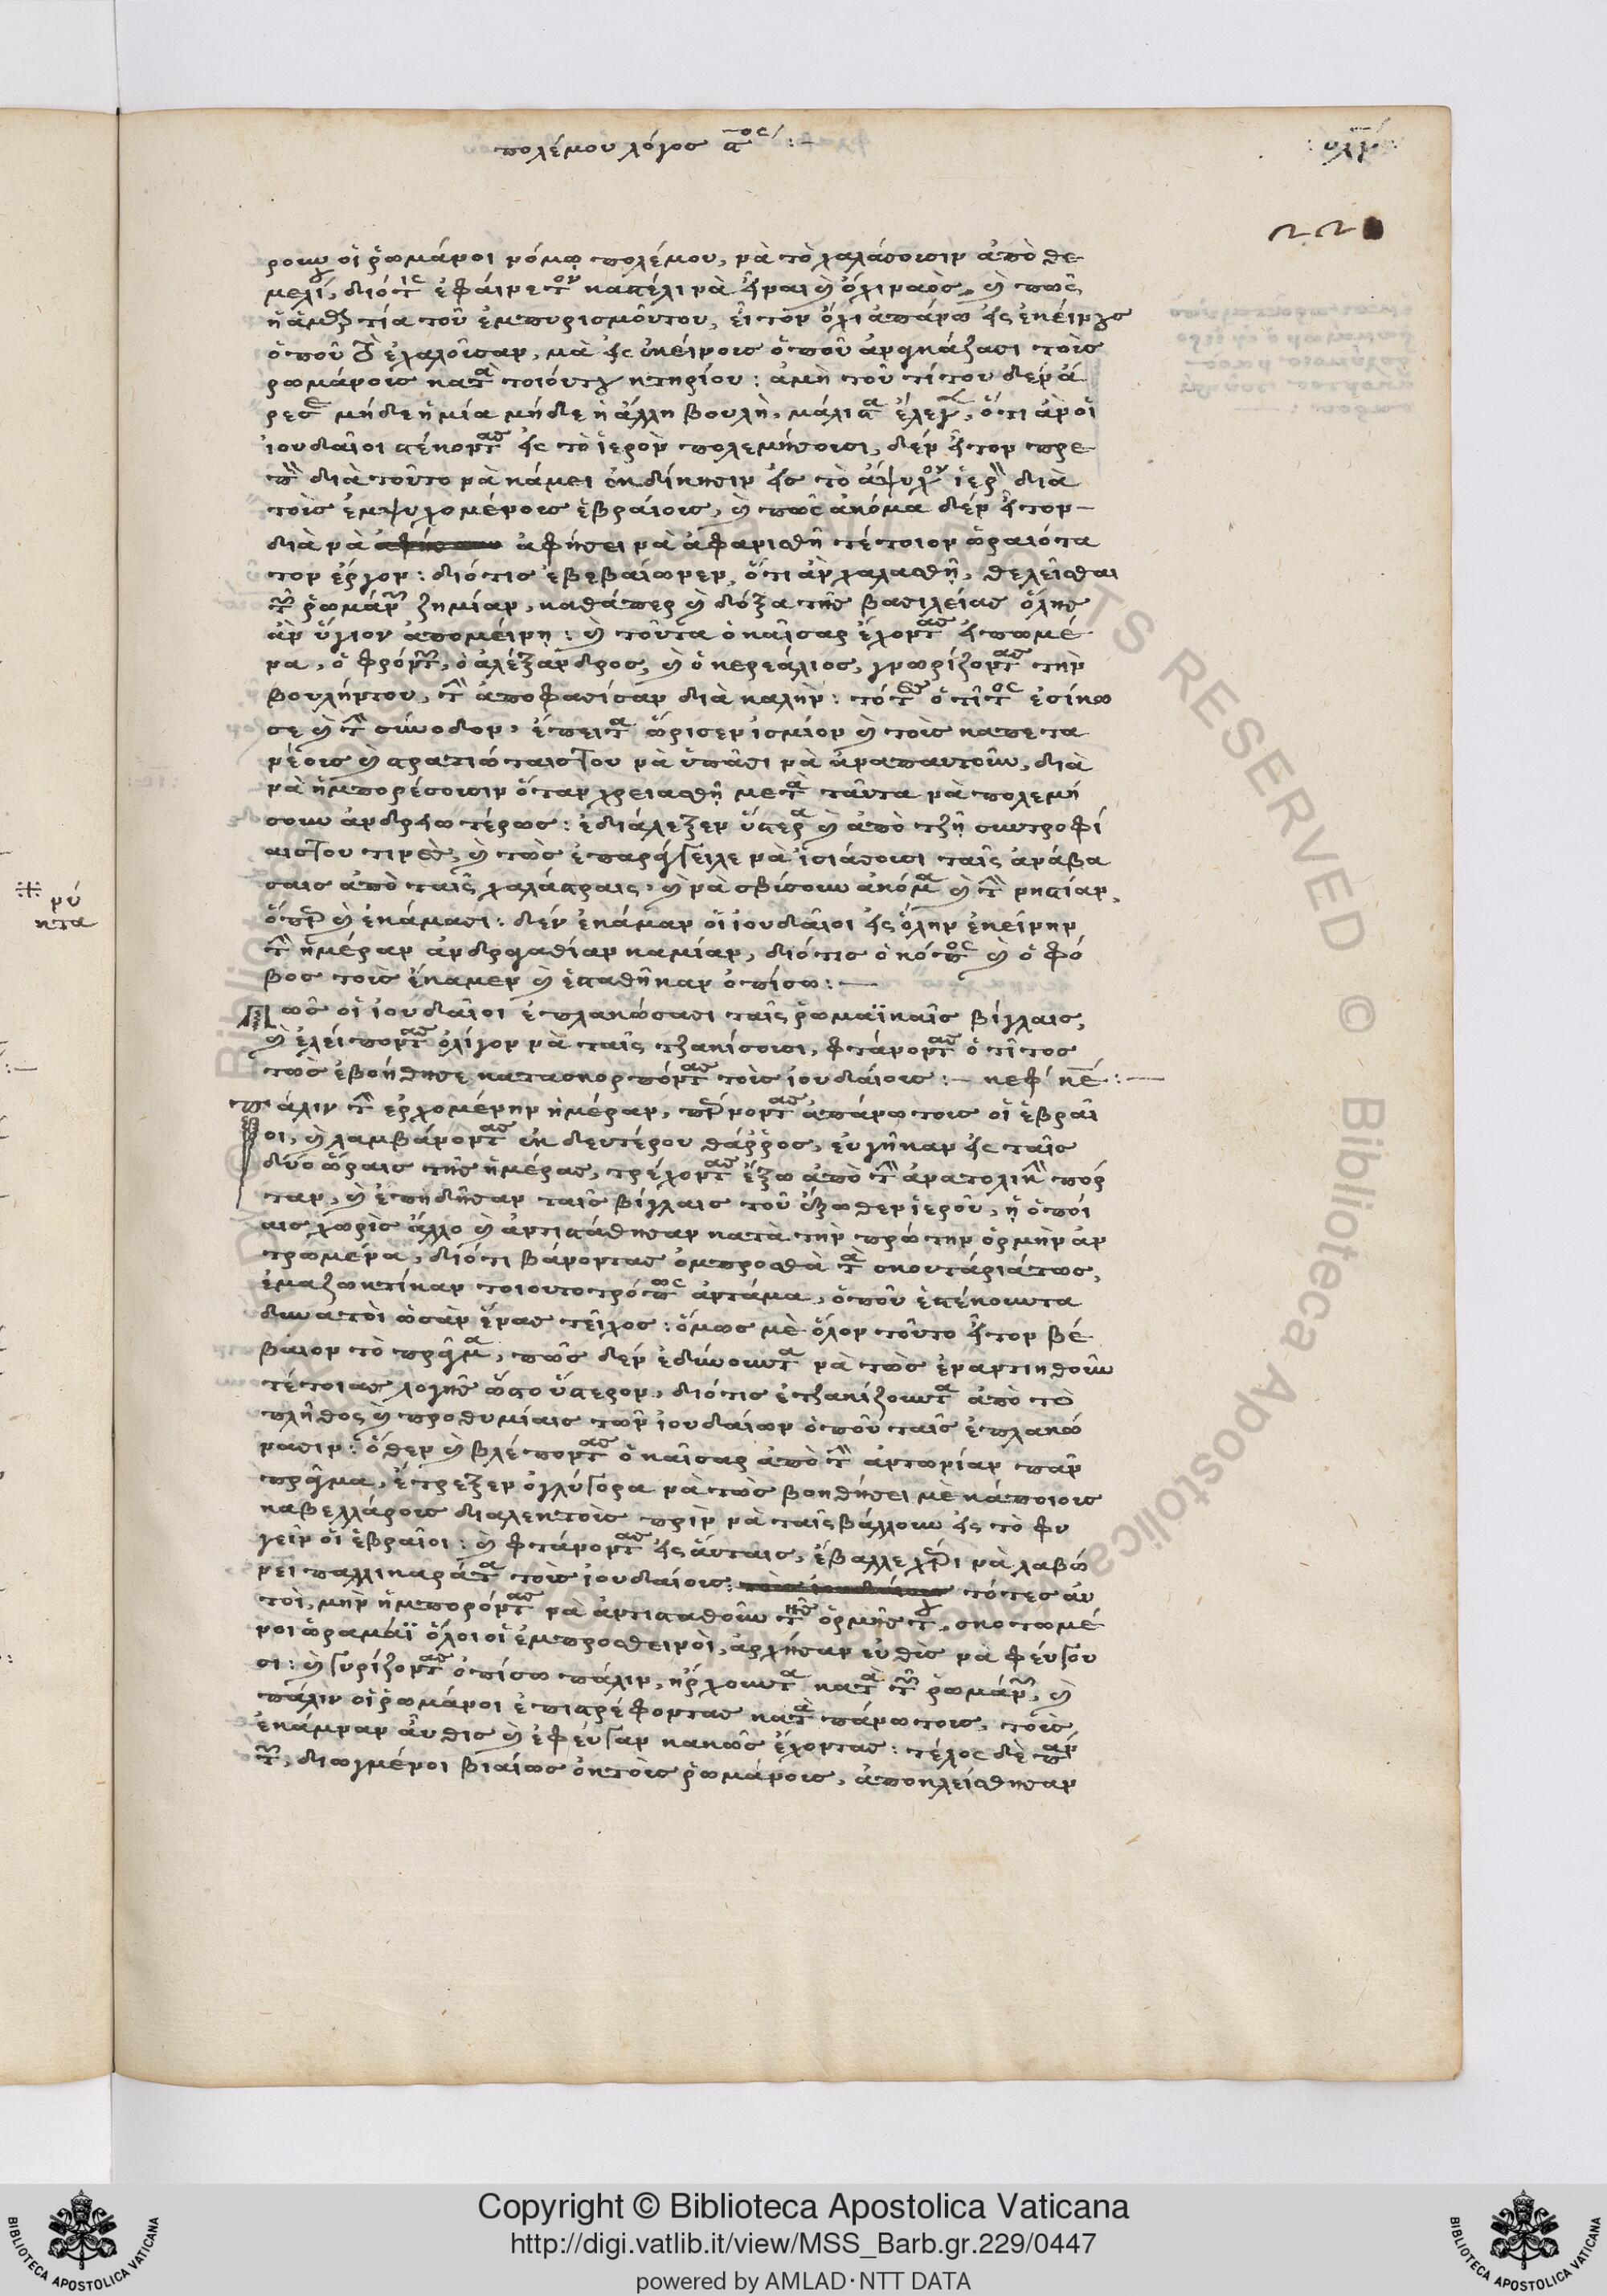 πολέμου λόγος ς̄ος :-
221
νουν οἱ ῥωμάνοι νόμῳ πολέμου, νὰ τὸ χαλάσουσιν ἀπὸ θε
ἡ ἁμαρτία τοῦ ἐμπυρισμοῦ του, εἶτον ὄχι ἀπάνω εἰς ἐκείνους
ὁποῦ τὸ ἐχαλοῦσαν, μὰ εἰς ἐκείνοις ὁποῦ ἀναγκάζασι τοὶς
ῥωμάνοις κατὰ τοιούτου κτηρίου : ἀμὴ τοῦ τίτου δὲν ἄ
ρεσε μήδε ἡ μία μήδε ἡ ἄλλη βουλὴ, μάλιστα ἔλεγεν, ὅτι ἂν οἱ
ἰουδαῖοι στέκοντας εἰς τὸ ἱερὸν πολεμήσουσι, δὲν εἶτον πρε
πὸν διὰ τοῦτο νὰ κάμει ἐκδίκησιν εἰς τὸ ἄψυχον ἱερὸν διὰ
τοὶς ἐμψυχομένοις ἑβραίοις, καὶ πῶς ἀκόμα δὲν εἶτον
διὰ νὰ ἀφήσει νὰ ἀφανισθῆ τέτοιον ὡραιότα
τον ἔργον : διότις ἐβεβαίωνεν, ὅτι ἂν χαλασθῆ, θελεῖσθαι
τῶν ῥωμάνων ζημίαν, καθάπερ καὶ δόξα τῆς βασιλείας ὅλης
ἂν ὕγιον ἀπομείνη : καὶ τοῦτα ὁ καῖσαρ ἔχοντας εἰπωμέ
να, ὁ φρόντων, ὁ ἀλέξανδρος, καὶ ὁ κερεάλιος, γνωρίζοντας τὴν
βουλήντου, τὴν ἀποφασίσαν διὰ καλὴν : τότες ὁ τῖτος ἐσίκω
σε καὶ τὴν σύνοδον, ἔπειτα ὥρισεν ἰσμιὸν καὶ τοὶς καπετα
νέοις καὶ στρατιώταιστου νὰ ὑπᾶσι νὰ ἀναπαυτοῦν, διὰ
νὰ ἡμπορέσουσιν ὅταν χρειασθῆ μετὰ ταῦτα νὰ πολεμή
σουν ἀνδρειωτέρως : ἐδιάλεξεν ὕστερα καὶ ἀπὸ τζῆ συντροφί
αιστου τινὲς, καὶ τὼς ἐπαράγγειλε νὰ ἰσιάσουσι ταῖς ἀνάβα
σαις ἀπὸ ταῖς χαλάστραις, καὶ νὰ σβίσουν ἀκόμα καὶ τὴν ϊστίαν,
ὅπερ καὶ ἐκάμασι : δὲν ἐκάμαν οἱ ἰουδαῖοι εἰς ὅλην ἐκείνην
τὴν ἡμέραν ἀνδραγαθίαν καμίαν, διότις ὁ κόπος καὶ ὁ φό
βος τοὶς ἔκαμεν καὶ ἐσταθῆκαν ὀπίσω :—
Πῶς οἱ ἰουδαῖοι ἐπλακώσασι ταῖς ῥωμαϊκαῖς βίγλαις,
καὶ ἐλείποντας ὀλίγον νὰ ταῖς τζακίσουσι, φτάνοντας ὁ τῖτος
τὼς ἐβοήθησε κατασκορπόντας τοὶς ἰουδαίοις :— κεφ κε :—
Πάλιν τὴν ἐρχομένην ἡμέραν, πέρνοντας ἀπάνω τοις οἱ ἑβραῖ
οι, καὶ λαμβάνοντας ἐκ δευτέρου θάῤῥος, εὐγῆκαν εἰς ταῖς
δύο ὥραις τῆς ἡμέρας, τρέχοντας ἔξω ἀπὸ τὴν ἀνατολικὴν πόρ
ταν, καὶ ἐπηδῆσαν ταῖς βίγλαις τοῦ ἔξωθεν ἱεροῦ, ἡ ὁποί
αις χωρὶς ἄλλο καὶ ἀντιστάθησαν κατὰ τὴν πρώτην ὁρμὴν ἀν
τρωμένα, διότι βάνοντας ὀμπροσθὰ τὰ σκουτάριάτως,
ἐμαζωκτίκαν τοιουτοτρόπως ἀντάμα, ὁποῦ ἐστέκουντα
δυνατοὶ ὡσὰν ἕνας τεῖχος : ὅμως μὲ ὅλον τοῦτο εἶτον βέ
βαιον τὸ πρᾶγμα, πῶς δὲν ἐδύνουντα νὰ τὼς ἐναντιηθοῦν
τέτοιας λογῆς ὥστο ὕστερον, διότις ἐτζακίζουντα ἀπὸ τὸ
πλῆθος καὶ προθυμίαις τῶν ἰουδαίων ὁποῦ ταῖς ἐπλακώ
νασιν : ὅθεν καὶ βλέποντας ὁ καῖσαρ ἀπὸ τὴν ἀντωνίαν πᾶν
πρᾶγμα, ἔτρεξεν ὀγλύγορα νὰ τὼς βοηθήσει μὲ κάποιοις
καβελλάροις διαλεκτοὶς πρὶν νὰ ταῖς βάλλουν εἰς τὸ φυ
γεῖν οἱ ἑβραῖοι : καὶ φτάνοντας εἰς ἄυταις, ἔβαλλε χέρι νὰ λαβώ
νει παλλικαράτα τοὶς ἰουδαίοις : τότες αὐ
τοὶ, μὴν ἡμπορόντας νὰ ἀντισταθοῦν τῆς ὁρμῆς του, σκοτωμέ
νοι ὁραμάϊ ὅλοι οἱ ἐμπροσθεινοὶ, ἀρχήσαν εὐθὶς νὰ φεύγου
σι : καὶ γυρίζοντας ὀπίσω πάλιν, ἠρχουντα κατὰ τῶν ῥωμάνων, καὶ
πάλιν οἱ ῥωμάνοι ἐπιστρέφοντας κατὰ πάνω τοις, τοὶς
ἐκάμναν ἄυθις καὶ ἐφεύγαν κακῶς ἔχοντας : τέλος δὲ πάν
των, διωγμένοι βιαίως ἐκ τοὶς ῥωμάνοις, ἀποκλείσθησαν
νύ
κτα
Copyright © Biblioteca Apostolica Vaticana
http://digi.vatlib.it/view/MSS_Barb.gr.229/0447
powered by AMLAD·NTT DATA